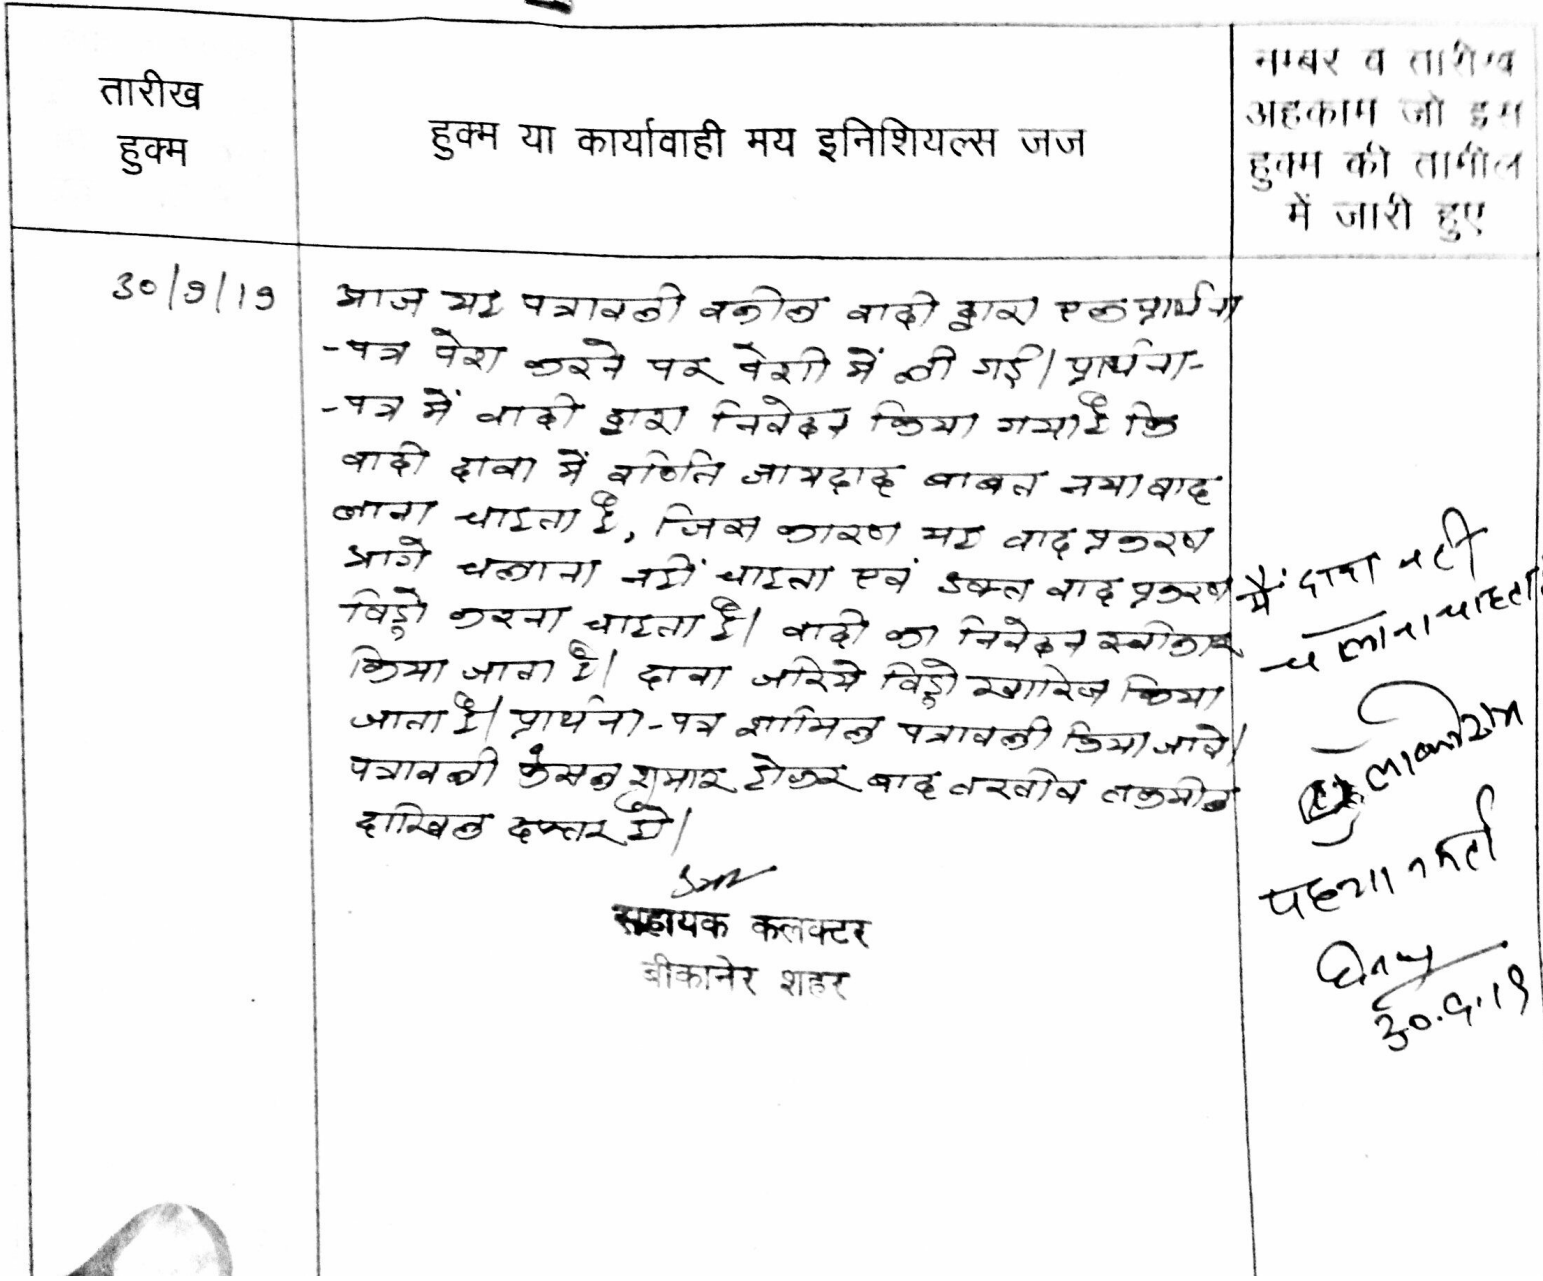 तारीख
हुक्म
हुक्म या कार्यावाही मय इनिशियल्स जज
नम्बर व तारीख
अहकाम जो इस
हुक्म की तामील
में जारी हुए
30/9/19
आज यह पत्रावली वकील वादी द्वारा एक प्रार्थना
-पत्र पेश करने पर पेशी में ली गई। प्रार्थना-
-पत्र में वादी द्वारा निवेदन किया गया है कि
वादी दावा में वर्णित जायदाद बाबत नया वाद
लाना चाहता है, जिस कारण यह वाद प्रकरण
आगे चलाना नहीं चाहता एवं उक्त वाद प्रकरण
विड्रो करना चाहता है। वादी का निवेदन स्वीकार
किया जाता है। दावा जरिये विड्रो खारिज किया
जाता है। प्रार्थना-पत्र शामिल पत्रावली किया जावे।
पत्रावली फैसल शुमार होकर बाद तरतीब तकमील
दाखिल दफ्तर हो।
सहायक कलक्टर
बीकानेर शहर
मैं दावा नही
चलाना चाहता
पहचान कर्ता
30.9.19